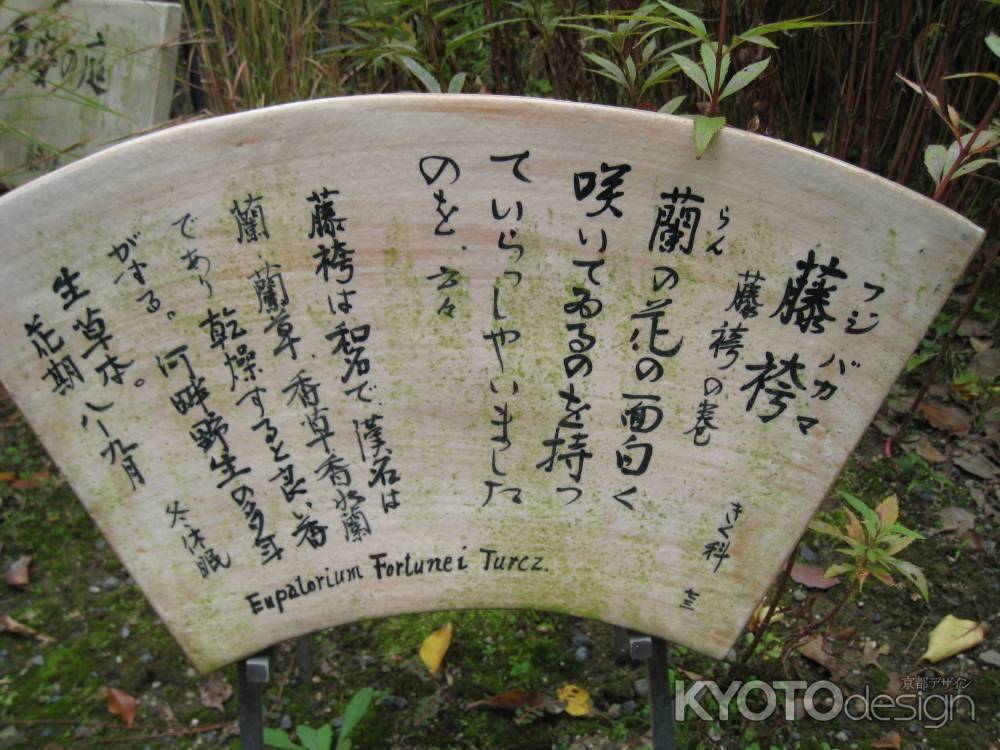 フジバカマ
藤袴
藤袴の巻
きく科
七三
らん
蘭の花の面白く
咲いてゐるのを持つ
ていらっしやいました
のを、云々
藤袴は和名で漢名は
蘭、蘭草、香草、香水蘭
であり乾燥すると良い香
がする。河畔野生の多年
生草本。
花期 八~九月
冬休眠
Eupatorium Fortunei Turcz.
の庭
KYOTOdesign
京都デザイン